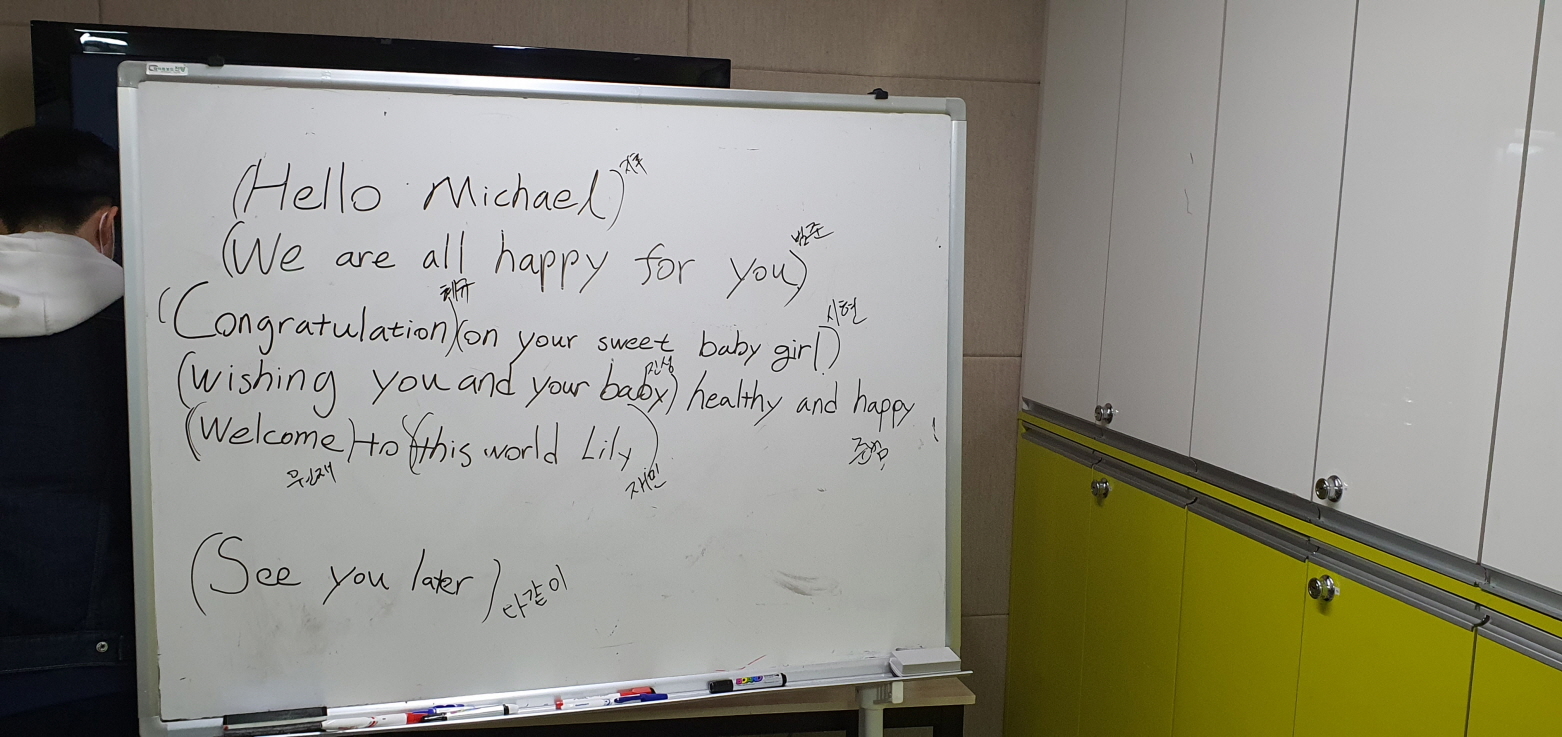 (Hello Michael)
(We are all happy for you) 범준
(Congratulation) (on your sweet baby girl) 시현
(wishing you and your baby) healthy and happy!
(Welcome) to (this world Lily) 재민
(See you later) 다같이